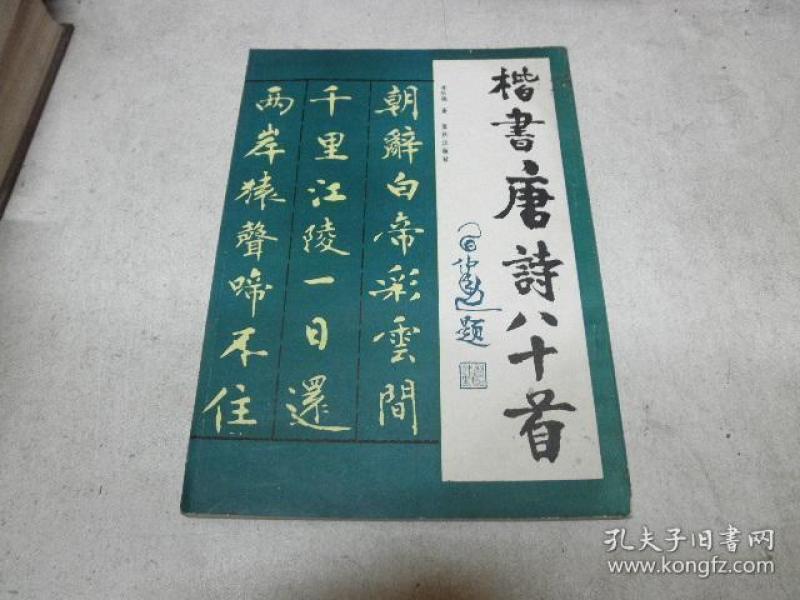 楷書唐詩八十首
題
朝辭白帝彩雲間
千里江陵一日還
两岸猿聲啼不住
孔夫子旧书网
www.kongfz.com